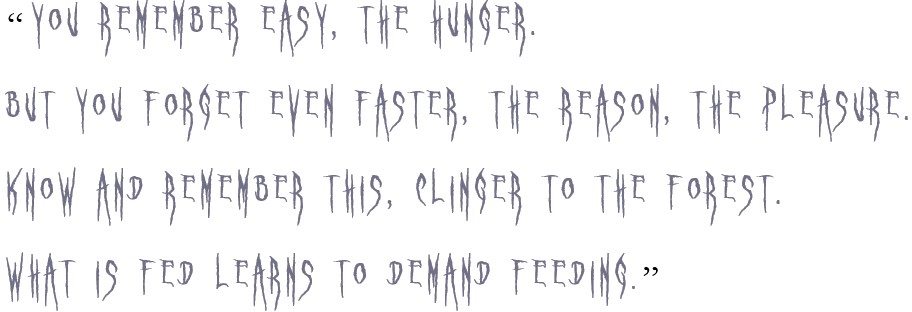 “YOU REMEMBER EASY, THE HUNGER.
BUT YOU FORGET EVEN FASTER, THE REASON, THE PLEASURE.
KNOW AND REMEMBER THIS, CLINGER TO THE FOREST.
WHAT IS FED LEARNS TO DEMAND FEEDING.”